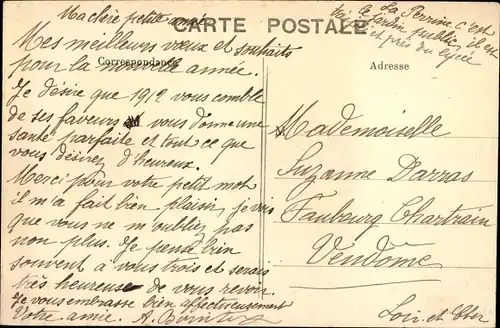 Ma chère petite amie
CARTE POSTALE
La Perrine c'est
le jardin public, il est
et près du lycée
Mes meilleurs vœux et souhaits
Correspondance
pour la nouvelle année.
Adresse
Je désire que 1912 vous comble
de ses faveurs vous donne une
santé parfaite et tout ce que
vous désirez d'heureux.
Merci pour votre petit mot
il m'a fait bien plaisir, je vois
que vous ne m'oubliez pas
non plus. Je pense bien
souvent à vous trois et serais
très heureuse de vous revoir.
Je vous embrasse bien affectueusement
Votre amie. A.
Mademoiselle
Suzanne Darras
Faubourg Chartrain
Vendôme
Loir et Cher